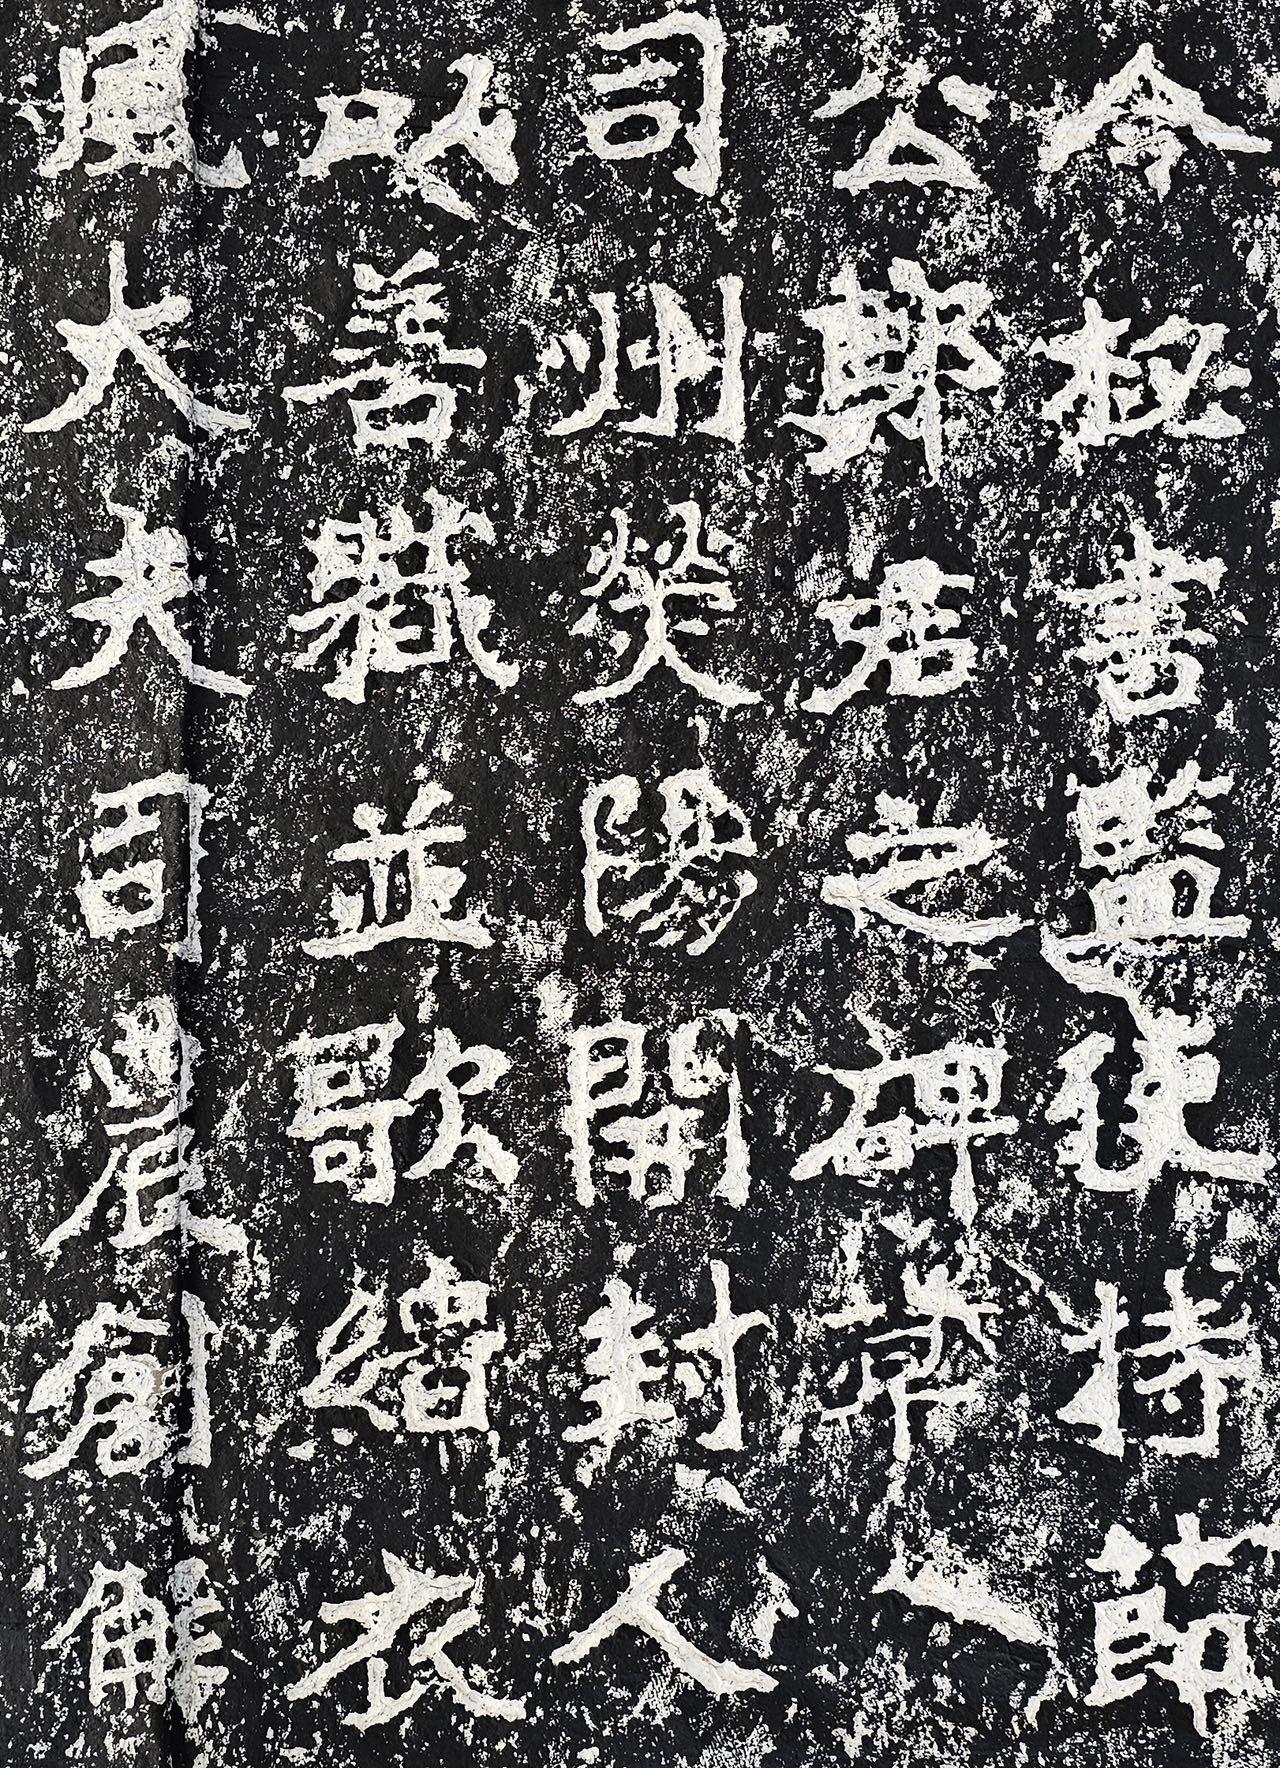 令秘書監使持節
公鄭君之碑草
司州滎陽開封人
以善職並歌緇衣
風大夫司農創解